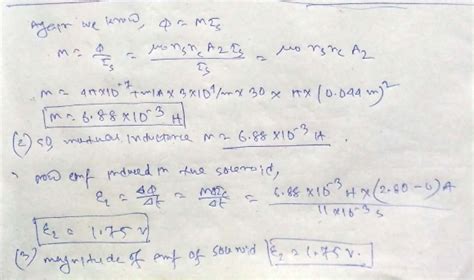 Again we know, Φ = M I_s
M = Φ/I_s = μ₀ n_s n_c A₂ I_s / I_s = μ₀ n_s n_c A₂
M = 4π×10⁻⁷ T·m/A × 3×10⁴/m × 30 × π × (0.044 m)²
M = 6.88 × 10⁻³ H
(2) so, mutual inductance M = 6.88 × 10⁻³ H.
now emf induced in the solenoid,
ε₂ = ΔΦ/Δt = MΔI/Δt = 6.88 × 10⁻³ H × (2.80 - 0) A / 11×10⁻³ s
ε₂ = 1.75 V
(3) magnitude of emf of solenoid ε₂ = 1.75 V.